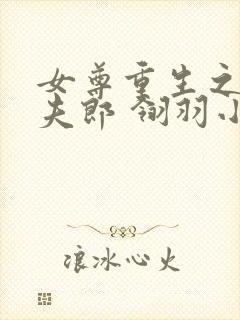 女尊重生之
夫郎 翎羽小
浪冰心火